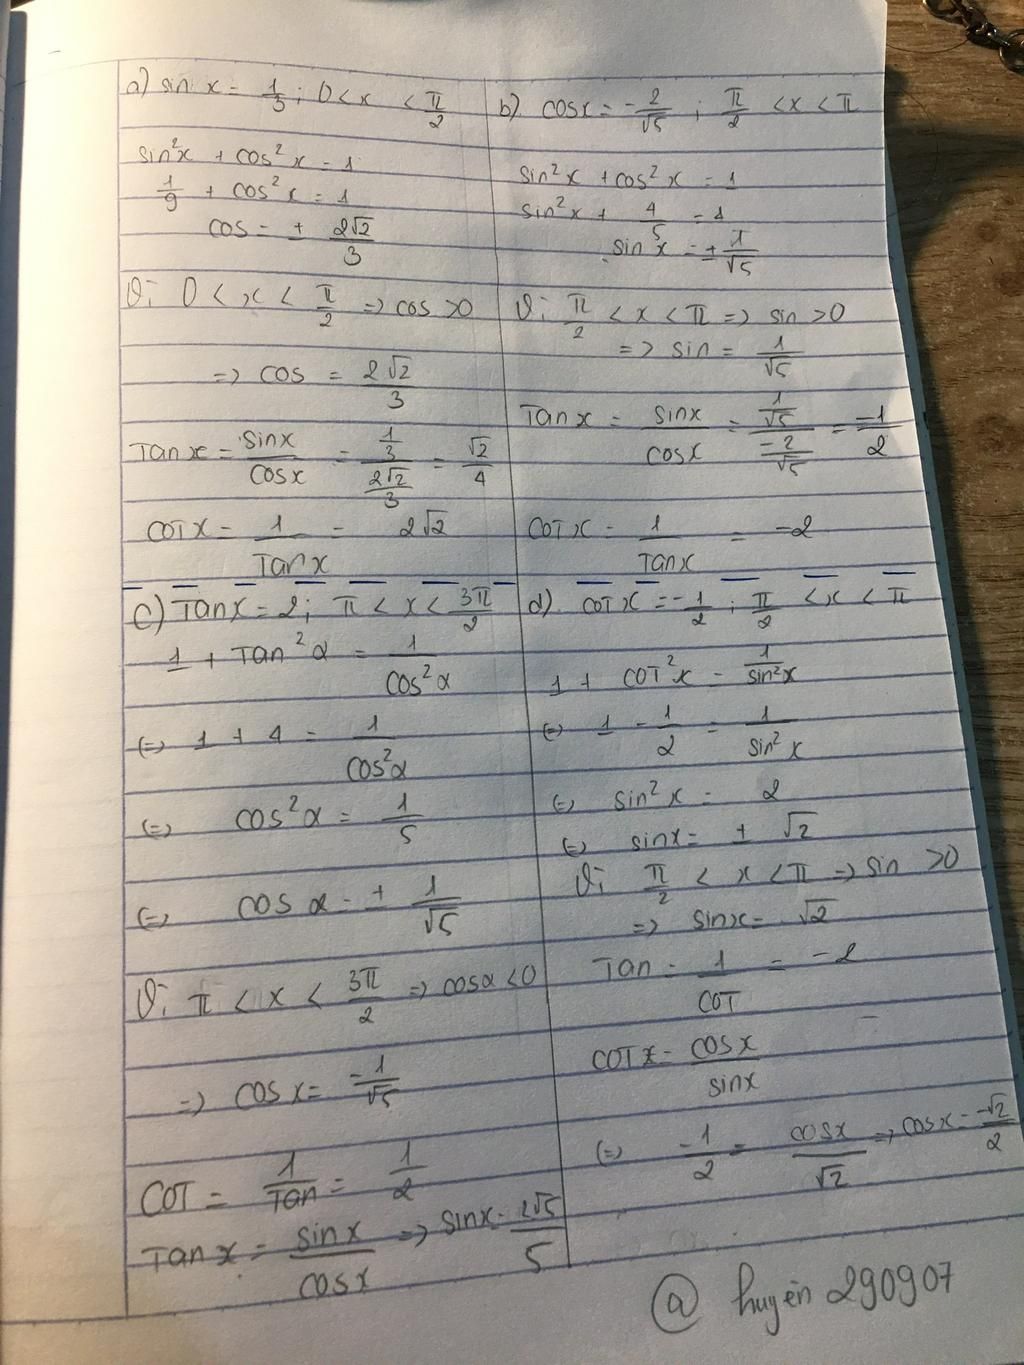 a) sin x = 1/3 ; 0 < x < π/2
sin²x + cos²x = 1
1/9 + cos²x = 1
cos = ± 2√2/3
Vì 0 < x < π/2 => cos > 0
=> cos = 2√2/3
Tan x = sin x / cos x = (1/3)/(2√2/3) = √2/4
COT x = 1/Tan x = 2√2
b) cos x = -2/√5 ; π/2 < x < π
sin²x + cos²x = 1
sin²x + 4/5 = 1
sin x = ± 1/√5
Vì π/2 < x < π => sin > 0
=> sin = 1/√5
Tan x = sin x / cos x = (1/√5)/(-2/√5) = -1/2
COT x = 1/Tan x = -2
c) Tan x = 2 ; π < x < 3π/2
1 + Tan²α = 1/cos²α
(=) 1 + 4 = 1/cos²α
(=) cos²α = 1/5
(=) cos α = ± 1/√5
Vì π < x < 3π/2 => cosα < 0
=> cos x = -1/√5
COT = 1/Tan = 1/2
Tan x = sin x / cos x => sin x = 2√5/5
d) cot x = -1/2 ; π/2 < x < π
1 + COT²x = 1/sin²x
(=) 1 - 1/2 = 1/sin²x
(=) sin²x = 2
(=) sin x = ± √2
Vì π/2 < x < π => sin > 0
=> sin x = √2
Tan = 1/COT = -2
COT x = cos x / sin x
(=) -1/2 = cos x / √2 => cos x = -√2/2
@ huyền 290907